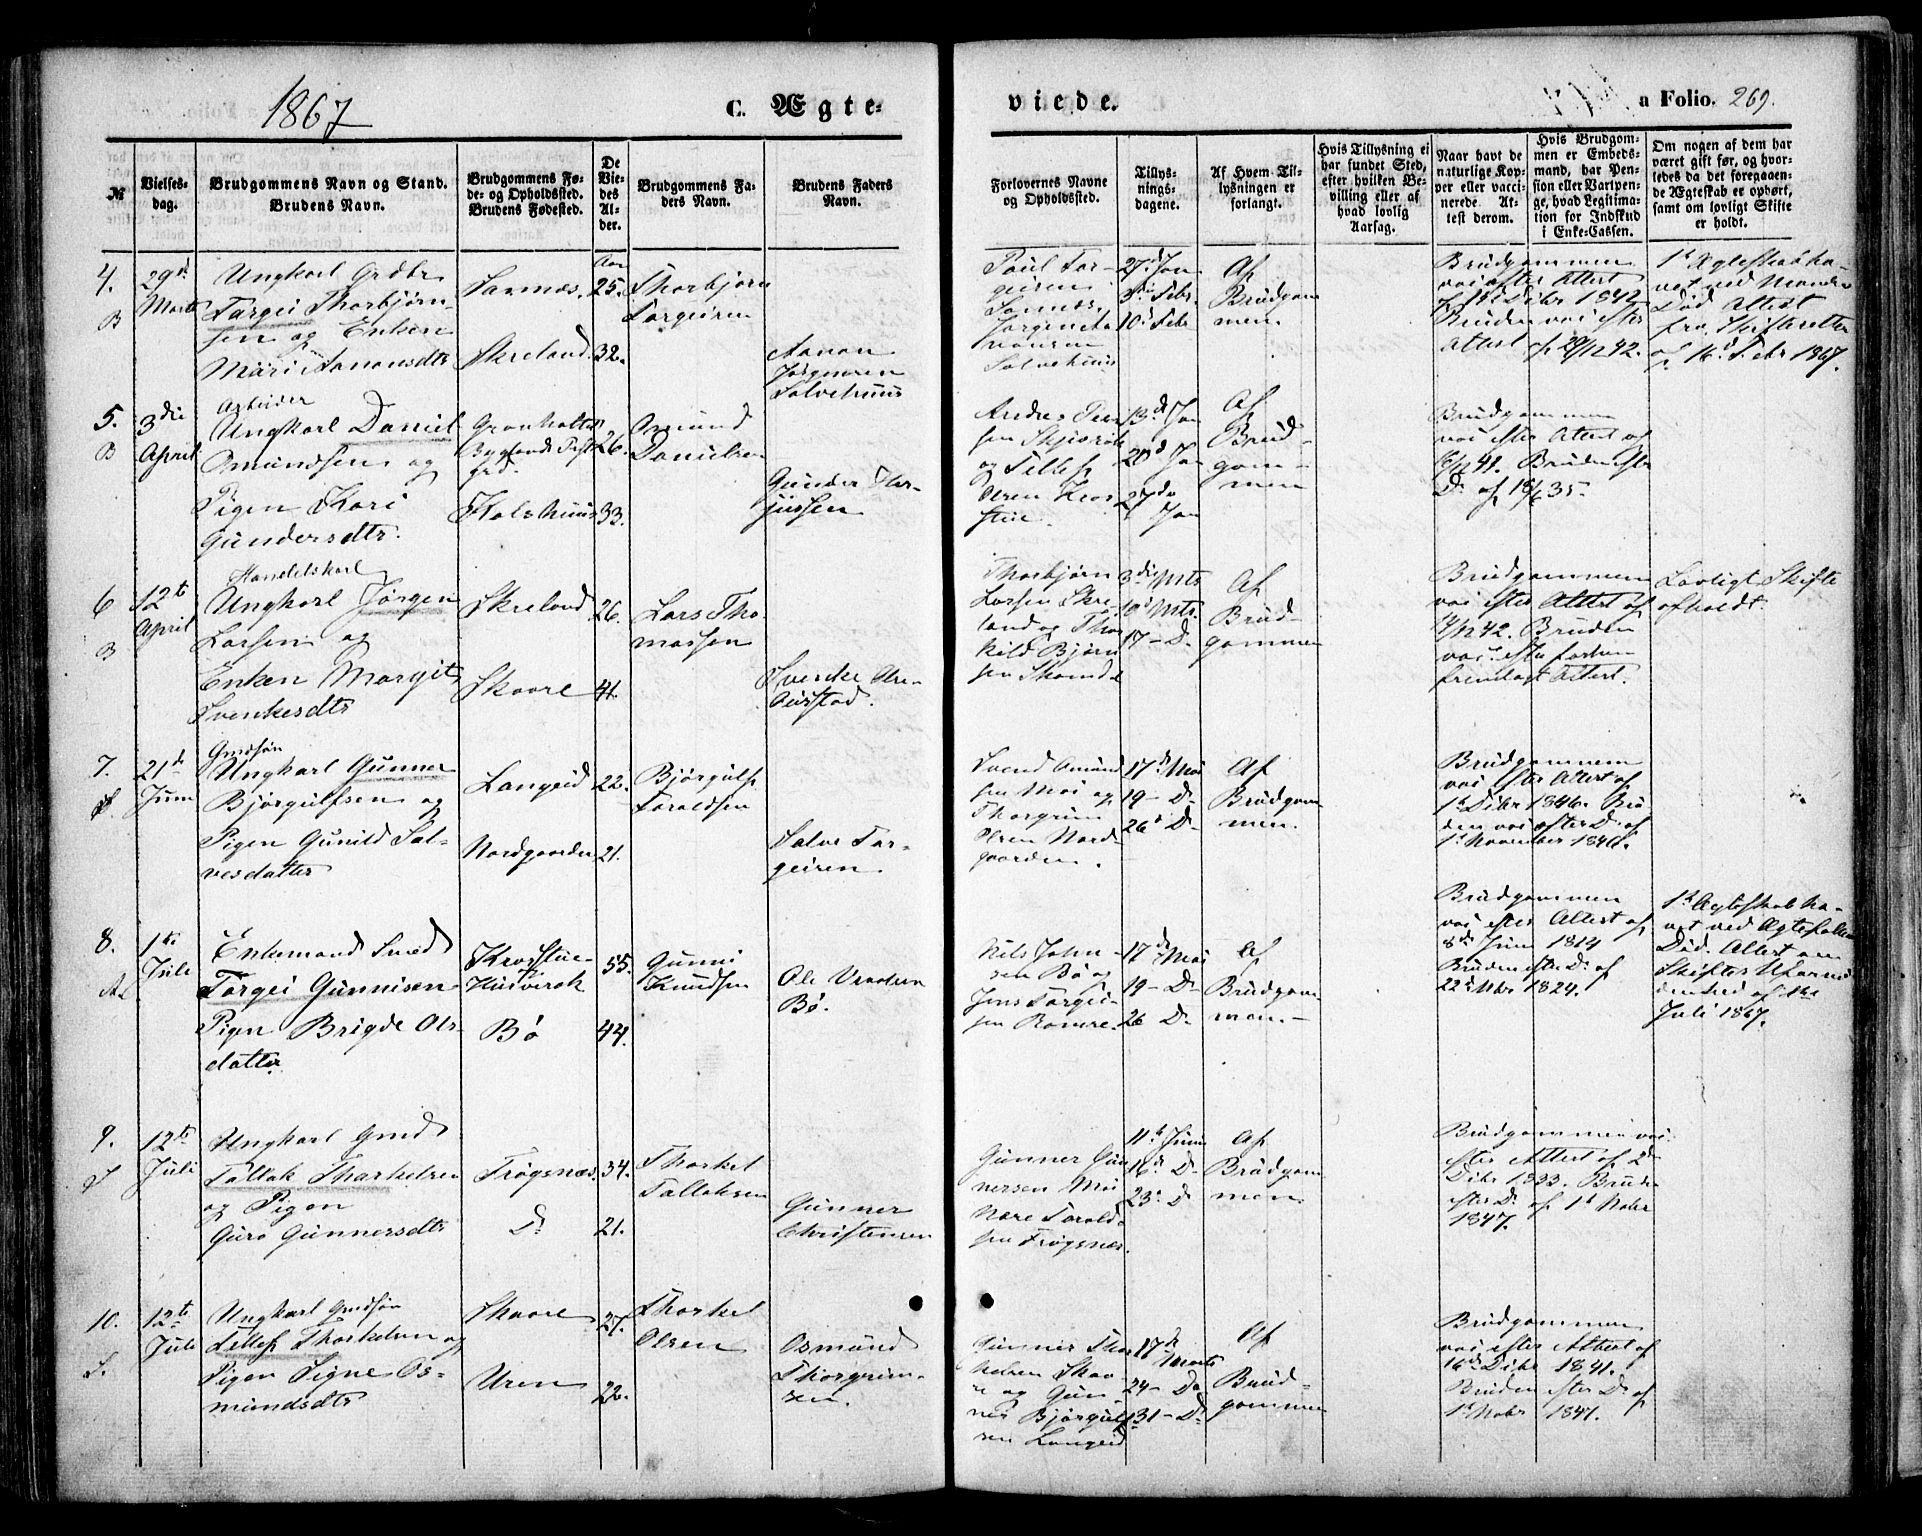 1867
C. Ægte-
№
Vielses-
dag.
Brudgommens Navn og Stand.
Brudens Navn.
Brudgommens Fø-
de- og Opholdssted.
Brudens Fødested.
De
Vie-
des
Al-
der.
Brudgommens Fa-
ders Navn.
Brudens Faders
Navn.
4.
B
29de
Marts
Ungkarl
Targei Thorbjørn-
sen og Enken
Mari Aanonsdtr
Sannæs.
Skreland.
Aar
25.
32.
Thorbjørn
Targeisen
Aanon
Jørgensen
Solvehuus
5.
B
3die
April
Arbeider
Ungkarl Daniel
Omundsen og
Pigen Kari
Gundersdtr.
Byglands
26.
33.
Omund
Danielsen
Gunder Ter-
jussen
6
B
12te
April
Handelskarl
Ungkarl Jørgen
Larsen og
Enken Margit
Svenkesdtr
Skreland
Skaare
26.
41.
Lars Tho-
massen
Svenke
7.
21de
Juni
Gmdsøn
Ungkarl Gunner
Bjørgulfsen og
Pigen Gunild Sal-
vesdatter
Langeid
Nordgaarden
22.
21.
Bjørgulf
Taraldsen
Salve Tar-
geisen
8.
A.
1te
Juli
Enkemand Smed
Targei Gunnisen
Pigen Brigde Ols-
datter
Bø
55.
44.
Gunni
Knudsen
Ole
Bø.
9.
12te
Juli
Ungkarl Gmd
Tallak Tharkelsen
og Pigen
Guro Gunnersdtr
Frøysnæs.
Do
34.
21.
Thorkel
Tallaksen
Gunner
Christensen
10.
S.
12te
Juli
Ungkarl Gmdsøn
Tellef Thorkelsen og
Pigen Signe Os-
mundsdtr
Skaare
Uren
27.
22.
Thorkel
Olsen
Osmund
Thorgrim-
sen.
viede.
a Folio. 269.
Forlovernes Navne
og Opholdssted.
Tillys-
nings-
dagene.
Af Hvem Til-
lysningen er
forlangt.
Hvis Tillysning ei
har fundet Sted,
efter hvilken Be-
villing eller af
hvad lovlig
Aarsag.
Naar havt de
naturlige Kop-
per eller vacci-
nerede. At-
test derom.
Hvis Brudgom-
men er Embeds-
mand, har Pen-
sion eller Vartpen-
ge, hvad Legitima-
tion for Indskud
i Enke-Cassen.
Om nogen af dem har
været gift før, og hvor-
ledes da det foregaaen-
de Ægteskab er ophørt,
samt om lovligt Skifte
er holdt.
Paul Tar-
geisen
Sannæs,
Solvehuus
27de Jan
3die Febr.
10de Febr
Af
Brudgom
men.
Brudgommen
vac. efter Attest
af 1ste Dcbr 1842
Bruden vac. efter
Attest af 20/12 42.
1ste Ægteskab hæ-
vet ved Mandens
Død. Attest
fra Skifteretten
af 16de Febr 1867.
og Tellef
Olsen
13de Jan
20de Jan
27de Jan
Af
Brud-
gom-
men
Brudgommen
vac. efter Attest af
41. Bruden efter
Do af 18/6 35.
Thorbjørn
Larsen Skre-
land og Thor
kild Bjørn
sen
3die Mts
10de Mts.
17 - Do
Af
Brud-
gommen
Brudgommen
vac. efter Attest af
42. Bruden
vac. efter forhen
fremlagt Attest.
Lovligt Skifte
afholdt.
Svend Omund
sen Moi og
Thorgrim
Olsen Nord-
gaarden.
17de Mai
19 - Do
26de Do
Af
Brudgom
men.
Brudgommen
vac. efter Attest af
1ste Dcbr 1846. Bru-
den vac. efter Do af
1ste November 1846.
Nils John-
sen Bø og
Jens Targei-
sen
17de Mai
19 - Do
26 Do
Af
Brudgom
men.
Brudgommen
vac. efter Attest af
8de Juni 1814
Bruden efter Do af
22de Nbr 1824.
1ste Ægteskab hæ-
vet ved Ægtefællens
Død. Attest om
Skiftets
af 1ste
Juli 1867.
Gunner Gun
nersen Moi
Tarald-
sen Frøysnæs.
11te Juni
16de Do
23de Do
Af
Brudgom
men
Brudgommen vac.
efter Attest af 2den
Dcbr 1833. Bruden
efter Do af 1ste Nobr
1847.
Gunner Thor
kelsen Skaa-
re og Gun
ner Bjørgulf
sen Langeid
17de
Marts
24 - Do
31 - Do
Af
Brud-
gommen
Brudgommen
vac. efter Attest af
16de Dcbr 1841.
Bruden efter Do af
1ste Nobr 1847.